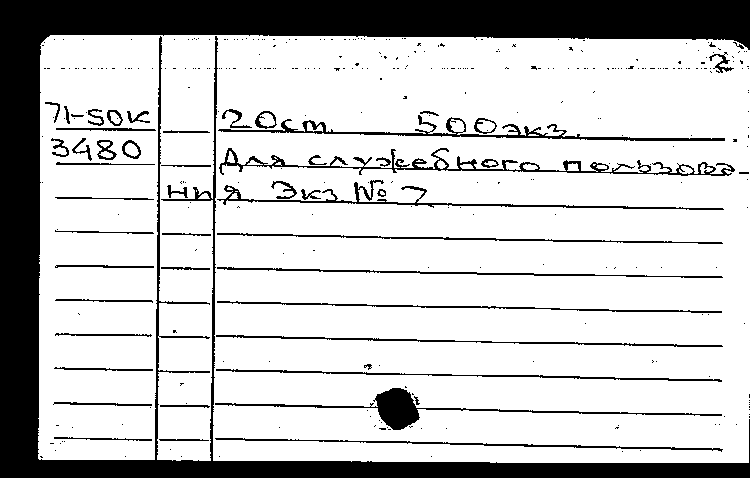 2
71-50к 20см. 500экз.
3480 Для служебного пользова-
ния Экз № 7